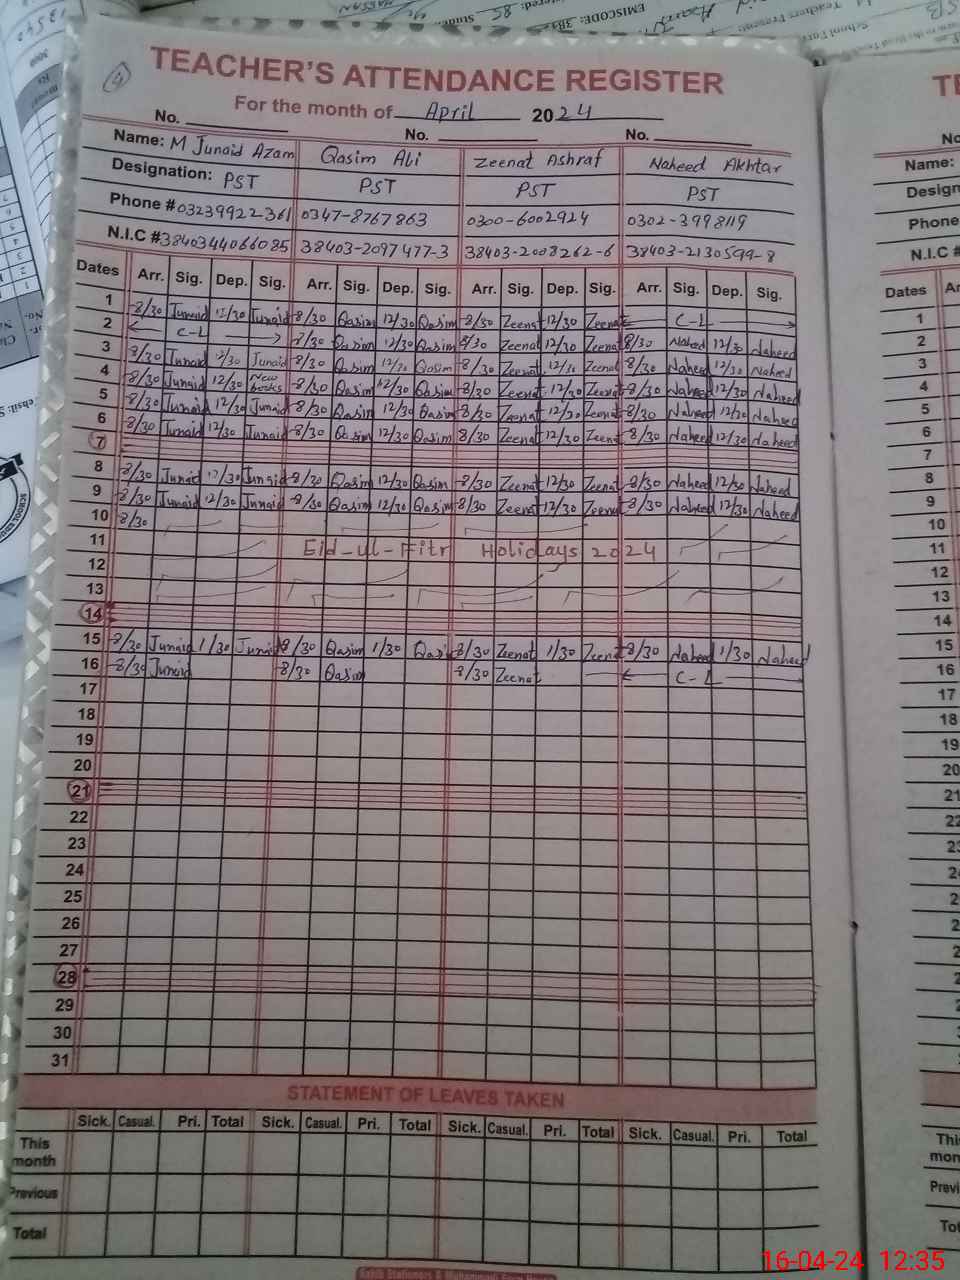 EMISCODE: 3B
Teachers Present:
School For
TEACHER'S ATTENDANCE REGISTER
For the month of April 2024
No. No. No.
Name: M Junaid Azam Qasim Ali Zeenat Ashraf Naheed Akhtar
Designation: PST PST PST PST
Phone # 03239922361 0347-8767863 0300-6002924 0302-3998119
N.I.C # 3840344066085 38403-2097477-3 38403-2008262-6 38403-2130599-8
Dates Arr. Sig. Dep. Sig. Arr. Sig. Dep. Sig. Arr. Sig. Dep. Sig. Arr. Sig. Dep. Sig.
1 8/30 Junaid 12/30 Junaid 8/30 Qasim 12/30 Qasim 8/30 Zeenat 12/30 Zeenat C-L
2 C-L 8/30 Qasim 12/30 Qasim 8/30 Zeenat 12/30 Zeenat 8/30 Naheed 12/30 Naheed
3 8/30 Junaid 12/30 Junaid 8/30 Qasim 12/30 Qasim 8/30 Zeenat 12/30 Zeenat 8/30 Naheed 12/30 Naheed
4 8/30 Junaid 12/30 New books 8/30 Qasim 12/30 Qasim 8/30 Zeenat 12/30 Zeenat 8/30 Naheed 12/30 Naheed
5 8/30 Junaid 12/30 Junaid 8/30 Qasim 12/30 Qasim 8/30 Zeenat 12/30 Zeenat 8/30 Naheed 12/30 Naheed
6 8/30 Junaid 12/30 Junaid 8/30 Qasim 12/30 Qasim 8/30 Zeenat 12/30 Zeenat 8/30 Naheed 12/30 Naheed
7
8 8/30 Junaid 12/30 Junaid 8/30 Qasim 12/30 Qasim 8/30 Zeenat 12/30 Zeenat 8/30 Naheed 12/30 Naheed
9 8/30 Junaid 12/30 Junaid 8/30 Qasim 12/30 Qasim 8/30 Zeenat 12/30 Zeenat 8/30 Naheed 12/30 Naheed
10 8/30
11 Eid-ul-Fitr Holidays 2024
12
13
14
15 8/30 Junaid 1/30 Junaid 8/30 Qasim 1/30 Qasim 8/30 Zeenat 1/30 Zeenat 8/30 Naheed 1/30 Naheed
16 8/30 Junaid 8/30 Qasim 8/30 Zeenat C-L
17
18
19
20
21
22
23
24
25
26
27
28
29
30
31
STATEMENT OF LEAVES TAKEN
Sick. Casual. Pri. Total Sick. Casual. Pri. Total Sick. Casual. Pri. Total Sick. Casual. Pri. Total
This month
Previous
Total
No
Name:
Phone
N.I.C #
Dates
1
2
3
4
5
6
7
8
9
10
11
12
13
14
15
16
17
18
19
20
21
22
16-04-24 12:35